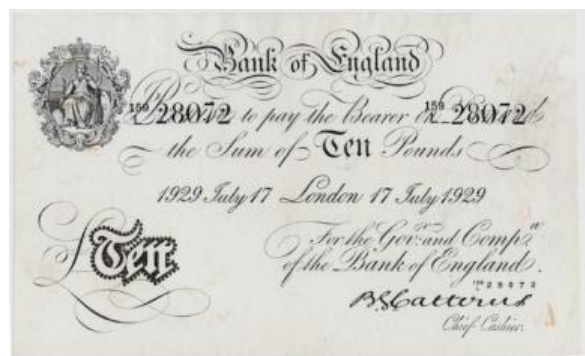 Bank of England
159 28072 159 28072
Promise to pay the Bearer on Demand
the Sum of Ten Pounds
1929 July 17 London 17 July 1929
For the Gov.r and Comp.a
of the Bank of England.
£ Ten
159 28072
B G Catterns
Chief Cashier.